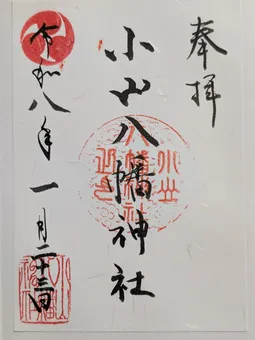 奉拝
小山八幡神社
令和八年一月二十三日